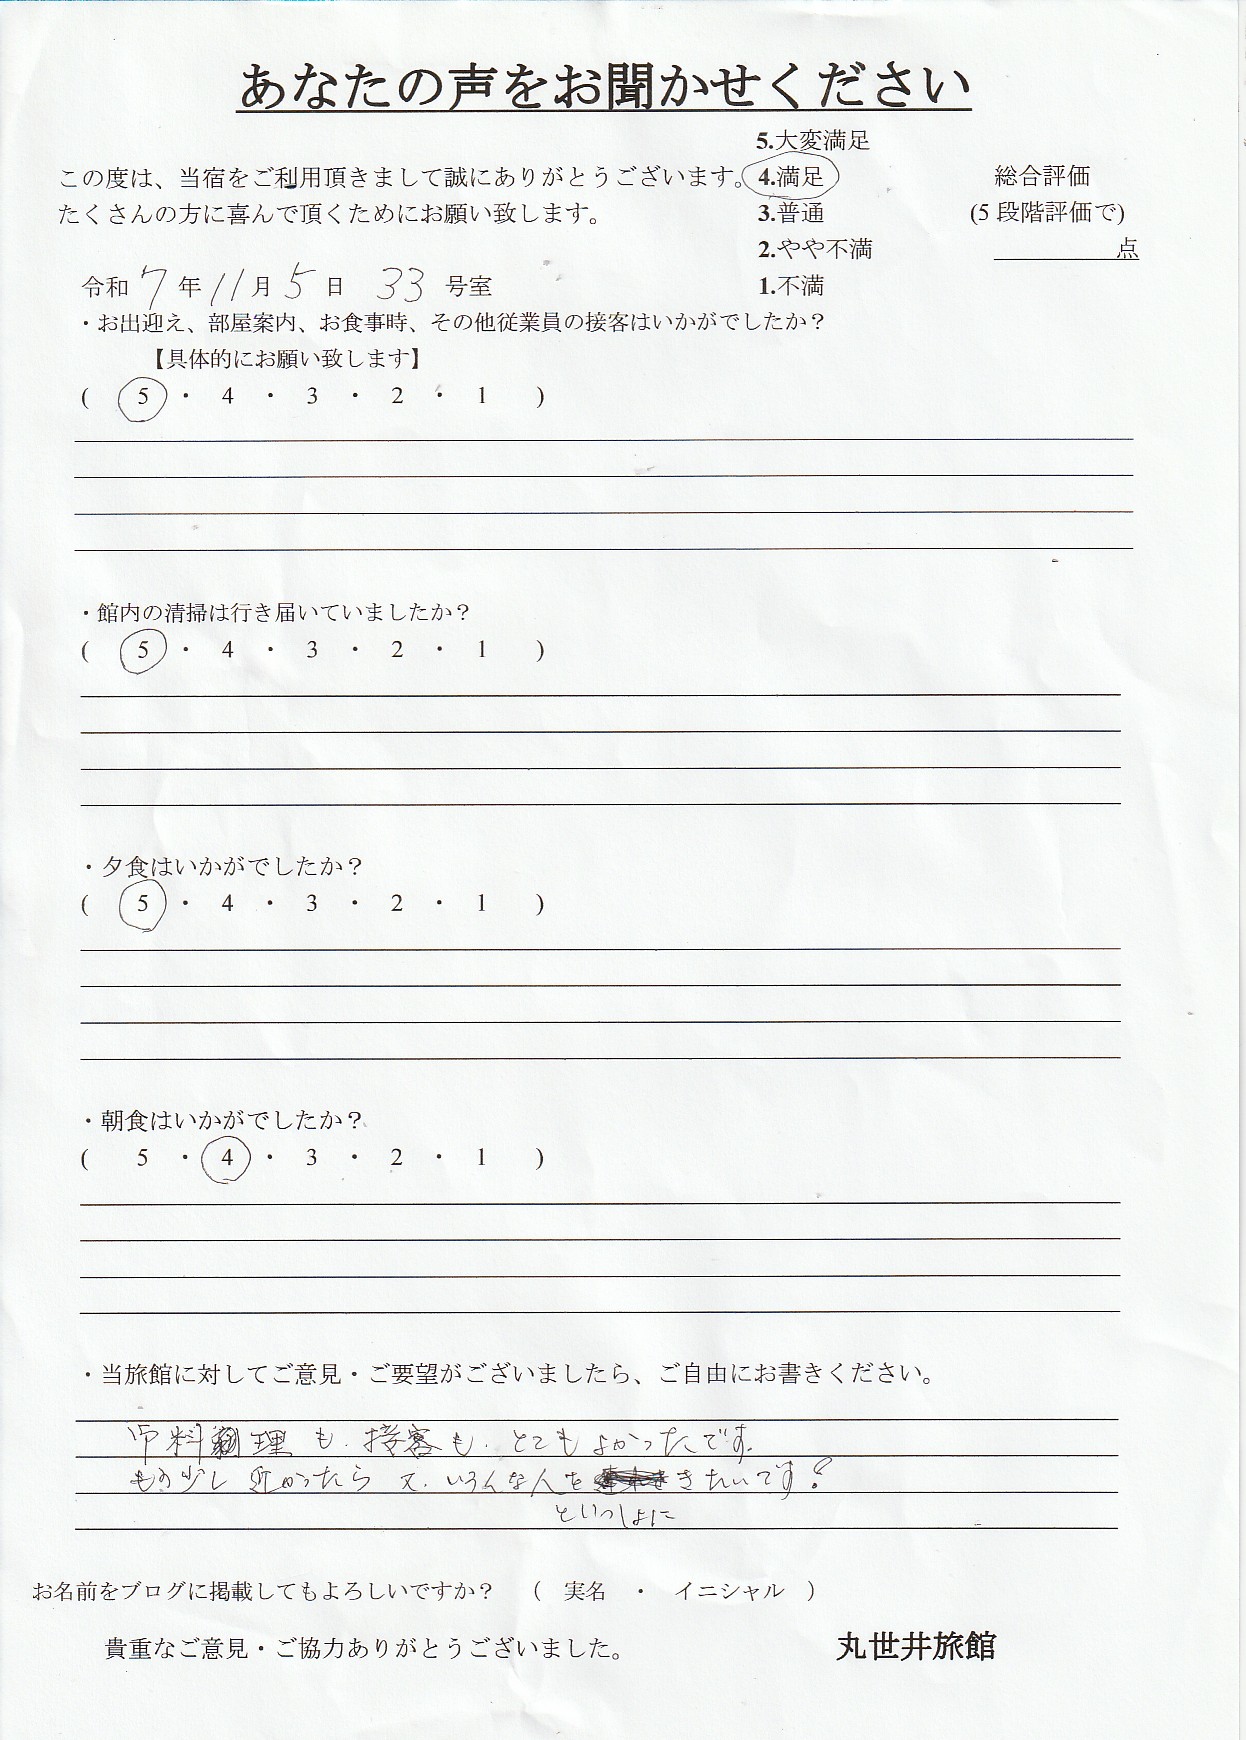 あなたの声をお聞かせください
この度は、当宿をご利用頂きまして誠にありがとうございます。
たくさんの方に喜んで頂くためにお願い致します。
5.大変満足
4.満足
3.普通
2.やや不満
1.不満
総合評価
(5 段階評価で)
点
令和 7 年 11 月 5 日 33 号室
・お出迎え、部屋案内、お食事時、その他従業員の接客はいかがでしたか？
【具体的にお願い致します】
( 5 ・ 4 ・ 3 ・ 2 ・ 1 )
・館内の清掃は行き届いていましたか？
( 5 ・ 4 ・ 3 ・ 2 ・ 1 )
・夕食はいかがでしたか？
( 5 ・ 4 ・ 3 ・ 2 ・ 1 )
・朝食はいかがでしたか？
( 5 ・ 4 ・ 3 ・ 2 ・ 1 )
・当旅館に対してご意見・ご要望がございましたら、ご自由にお書きください。
料理も、接客も、とてもよかったです。
もう少し近かったら又、いろんな人をきたいです!
といっしょに
お名前をブログに掲載してもよろしいですか？ （ 実名 ・ イニシャル ）
貴重なご意見・ご協力ありがとうございました。
丸世井旅館